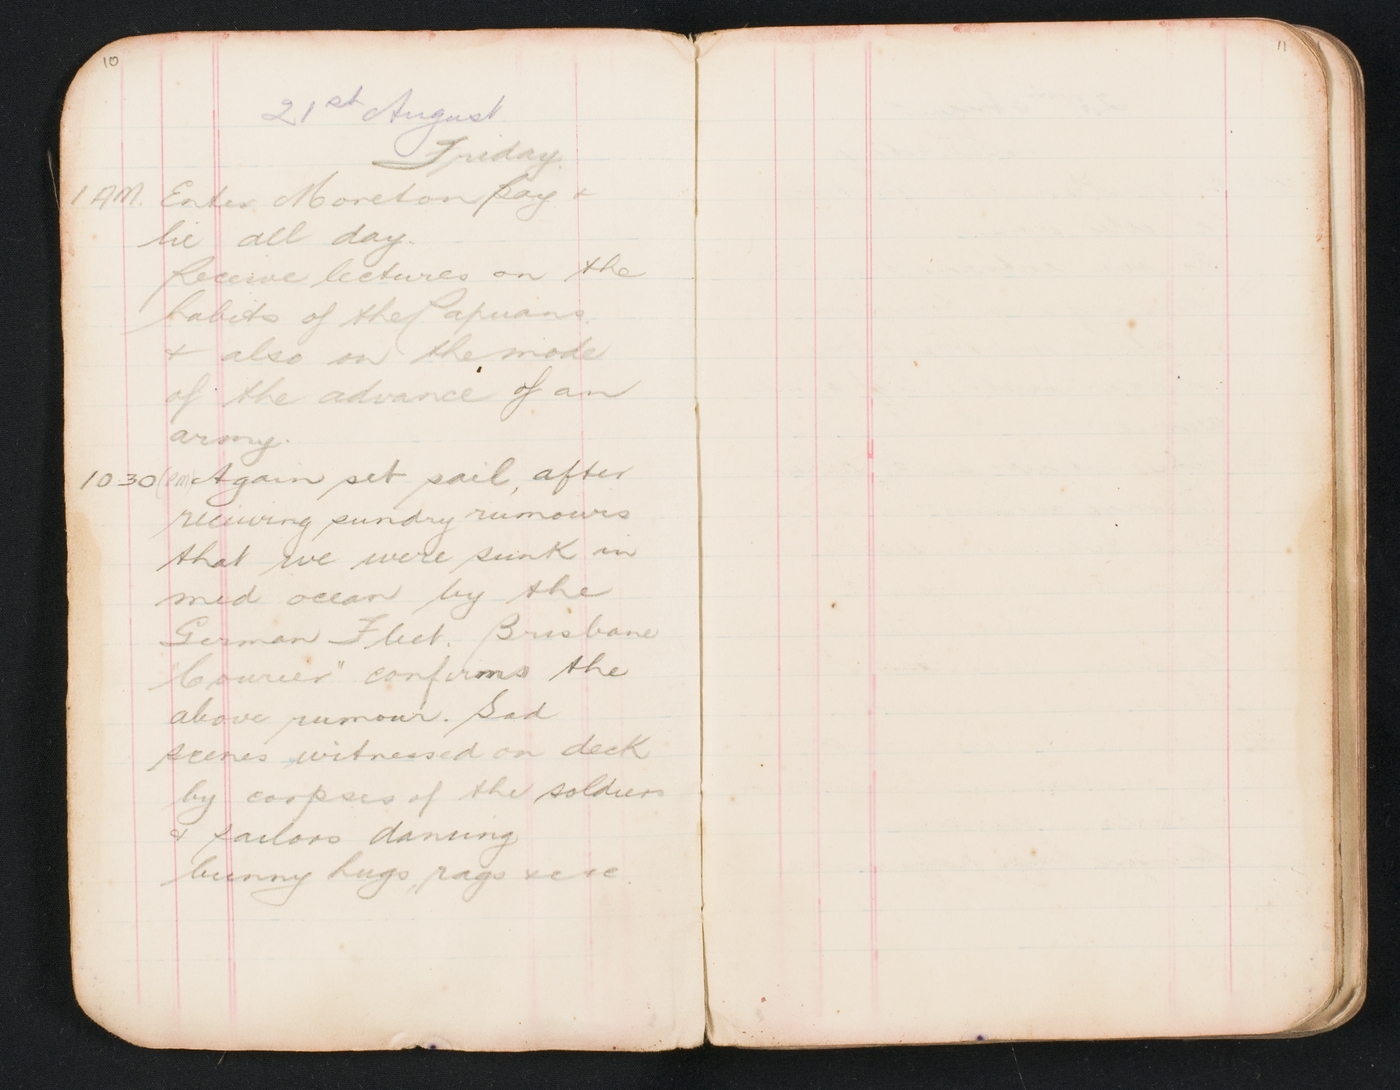 10
21st August
Friday.
1 AM. Enter Moreton Bay &
lie all day.
Receive lectures on the
habits of the Papuans.
& also on the mode
of the advance of an
army.
10 30 (PM) Again set sail, after
receiving sundry rumours
that we were sunk in
mid ocean by the
German Fleet. Brisbane
"Courier" confirms the
above rumour. Sad
scenes witnessed on deck
by corpses of the soldiers
& sailors dancing
bunny hugs, rags
11